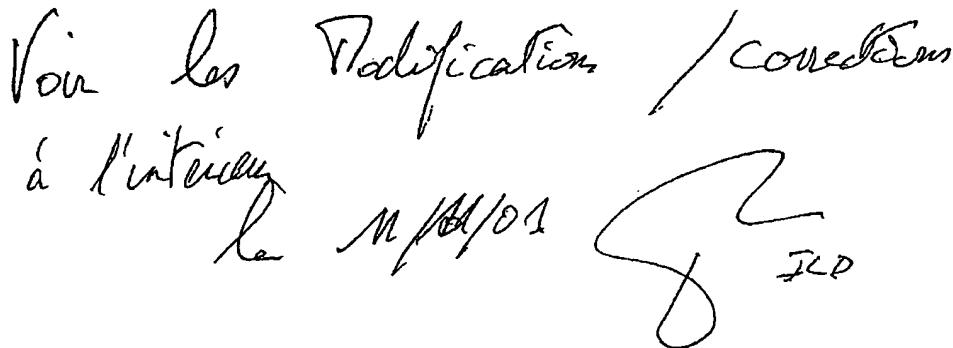 Voir les Modifications / corrections
à l'intérieur
le 11/01
ILD